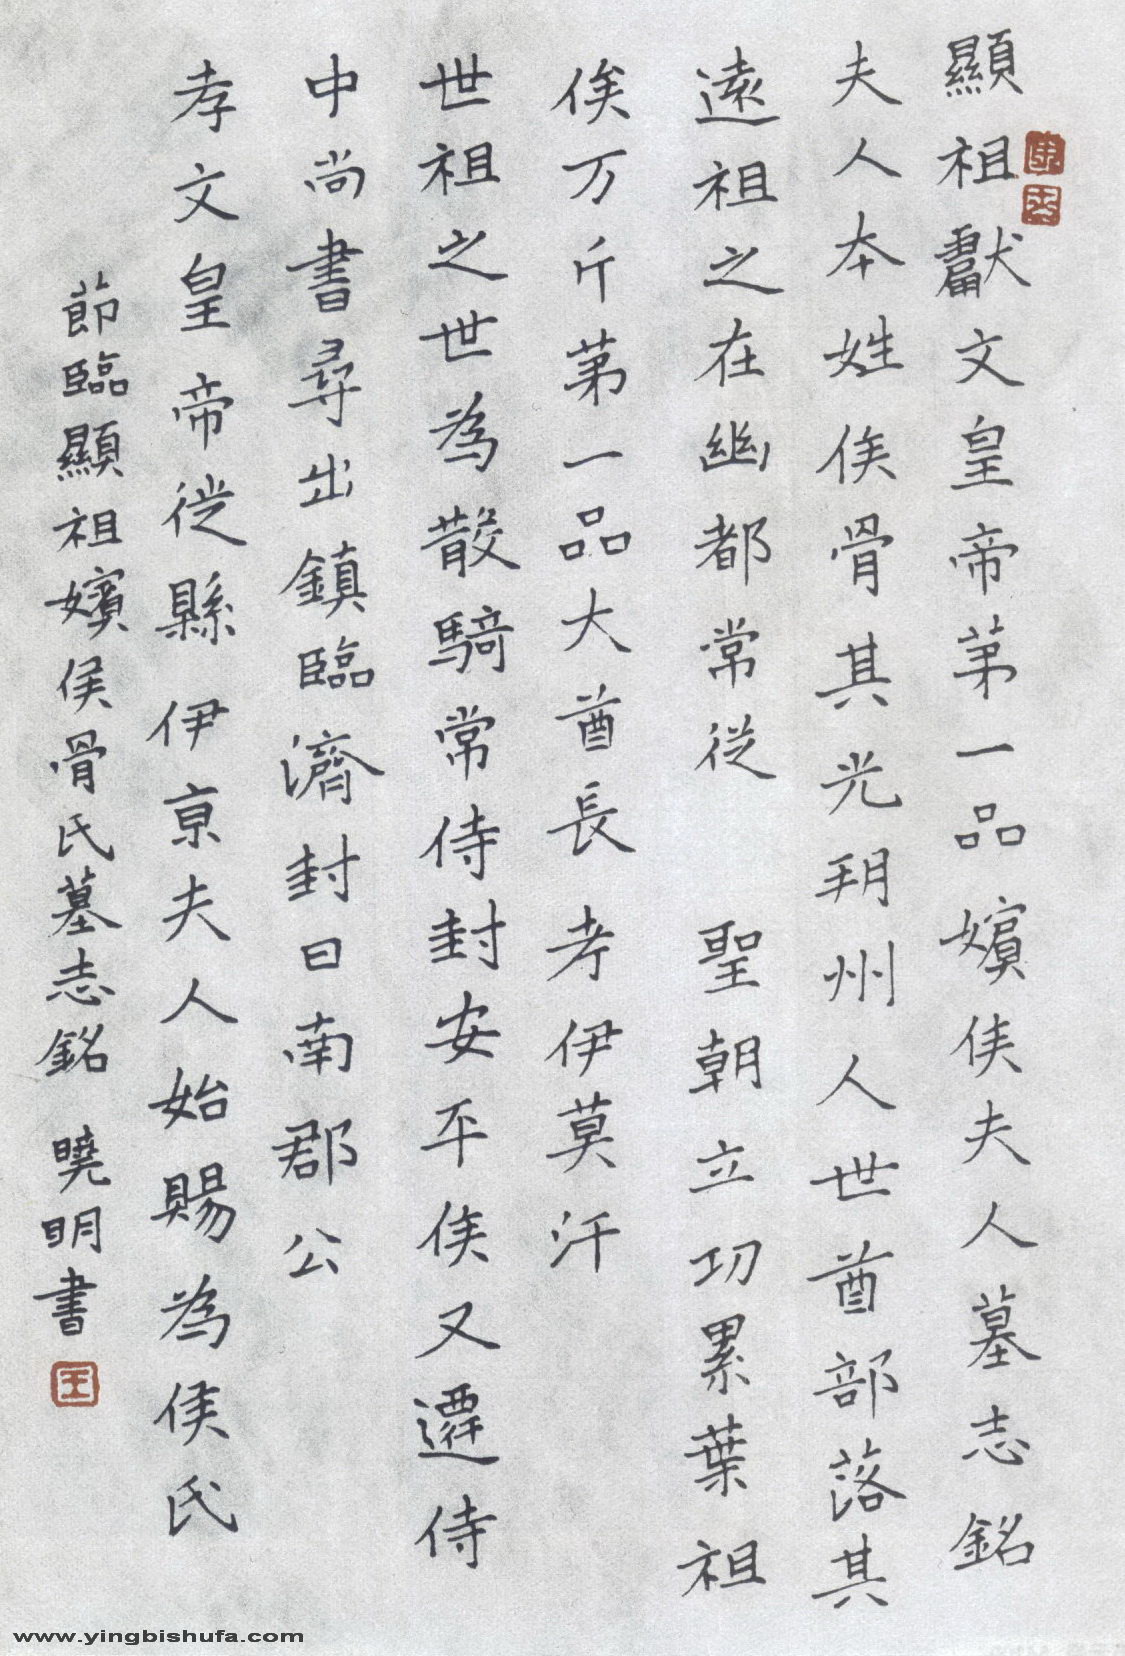 顯祖獻文皇帝苐一品嬪侯夫人墓志銘
夫人本姓侯骨其光朔州人世酋部落其
遠祖之在幽都常從 聖朝立功累葉祖
俟万斤苐一品大酋長 考伊莫汗
世祖之世為散騎常侍封安平侯又遷侍
中尚書尋出鎮臨濟封日南郡公
孝文皇帝徙縣伊京夫人始賜為侯氏
節臨顯祖嬪侯骨氏墓志銘 曉明書
www.yingbishufa.com